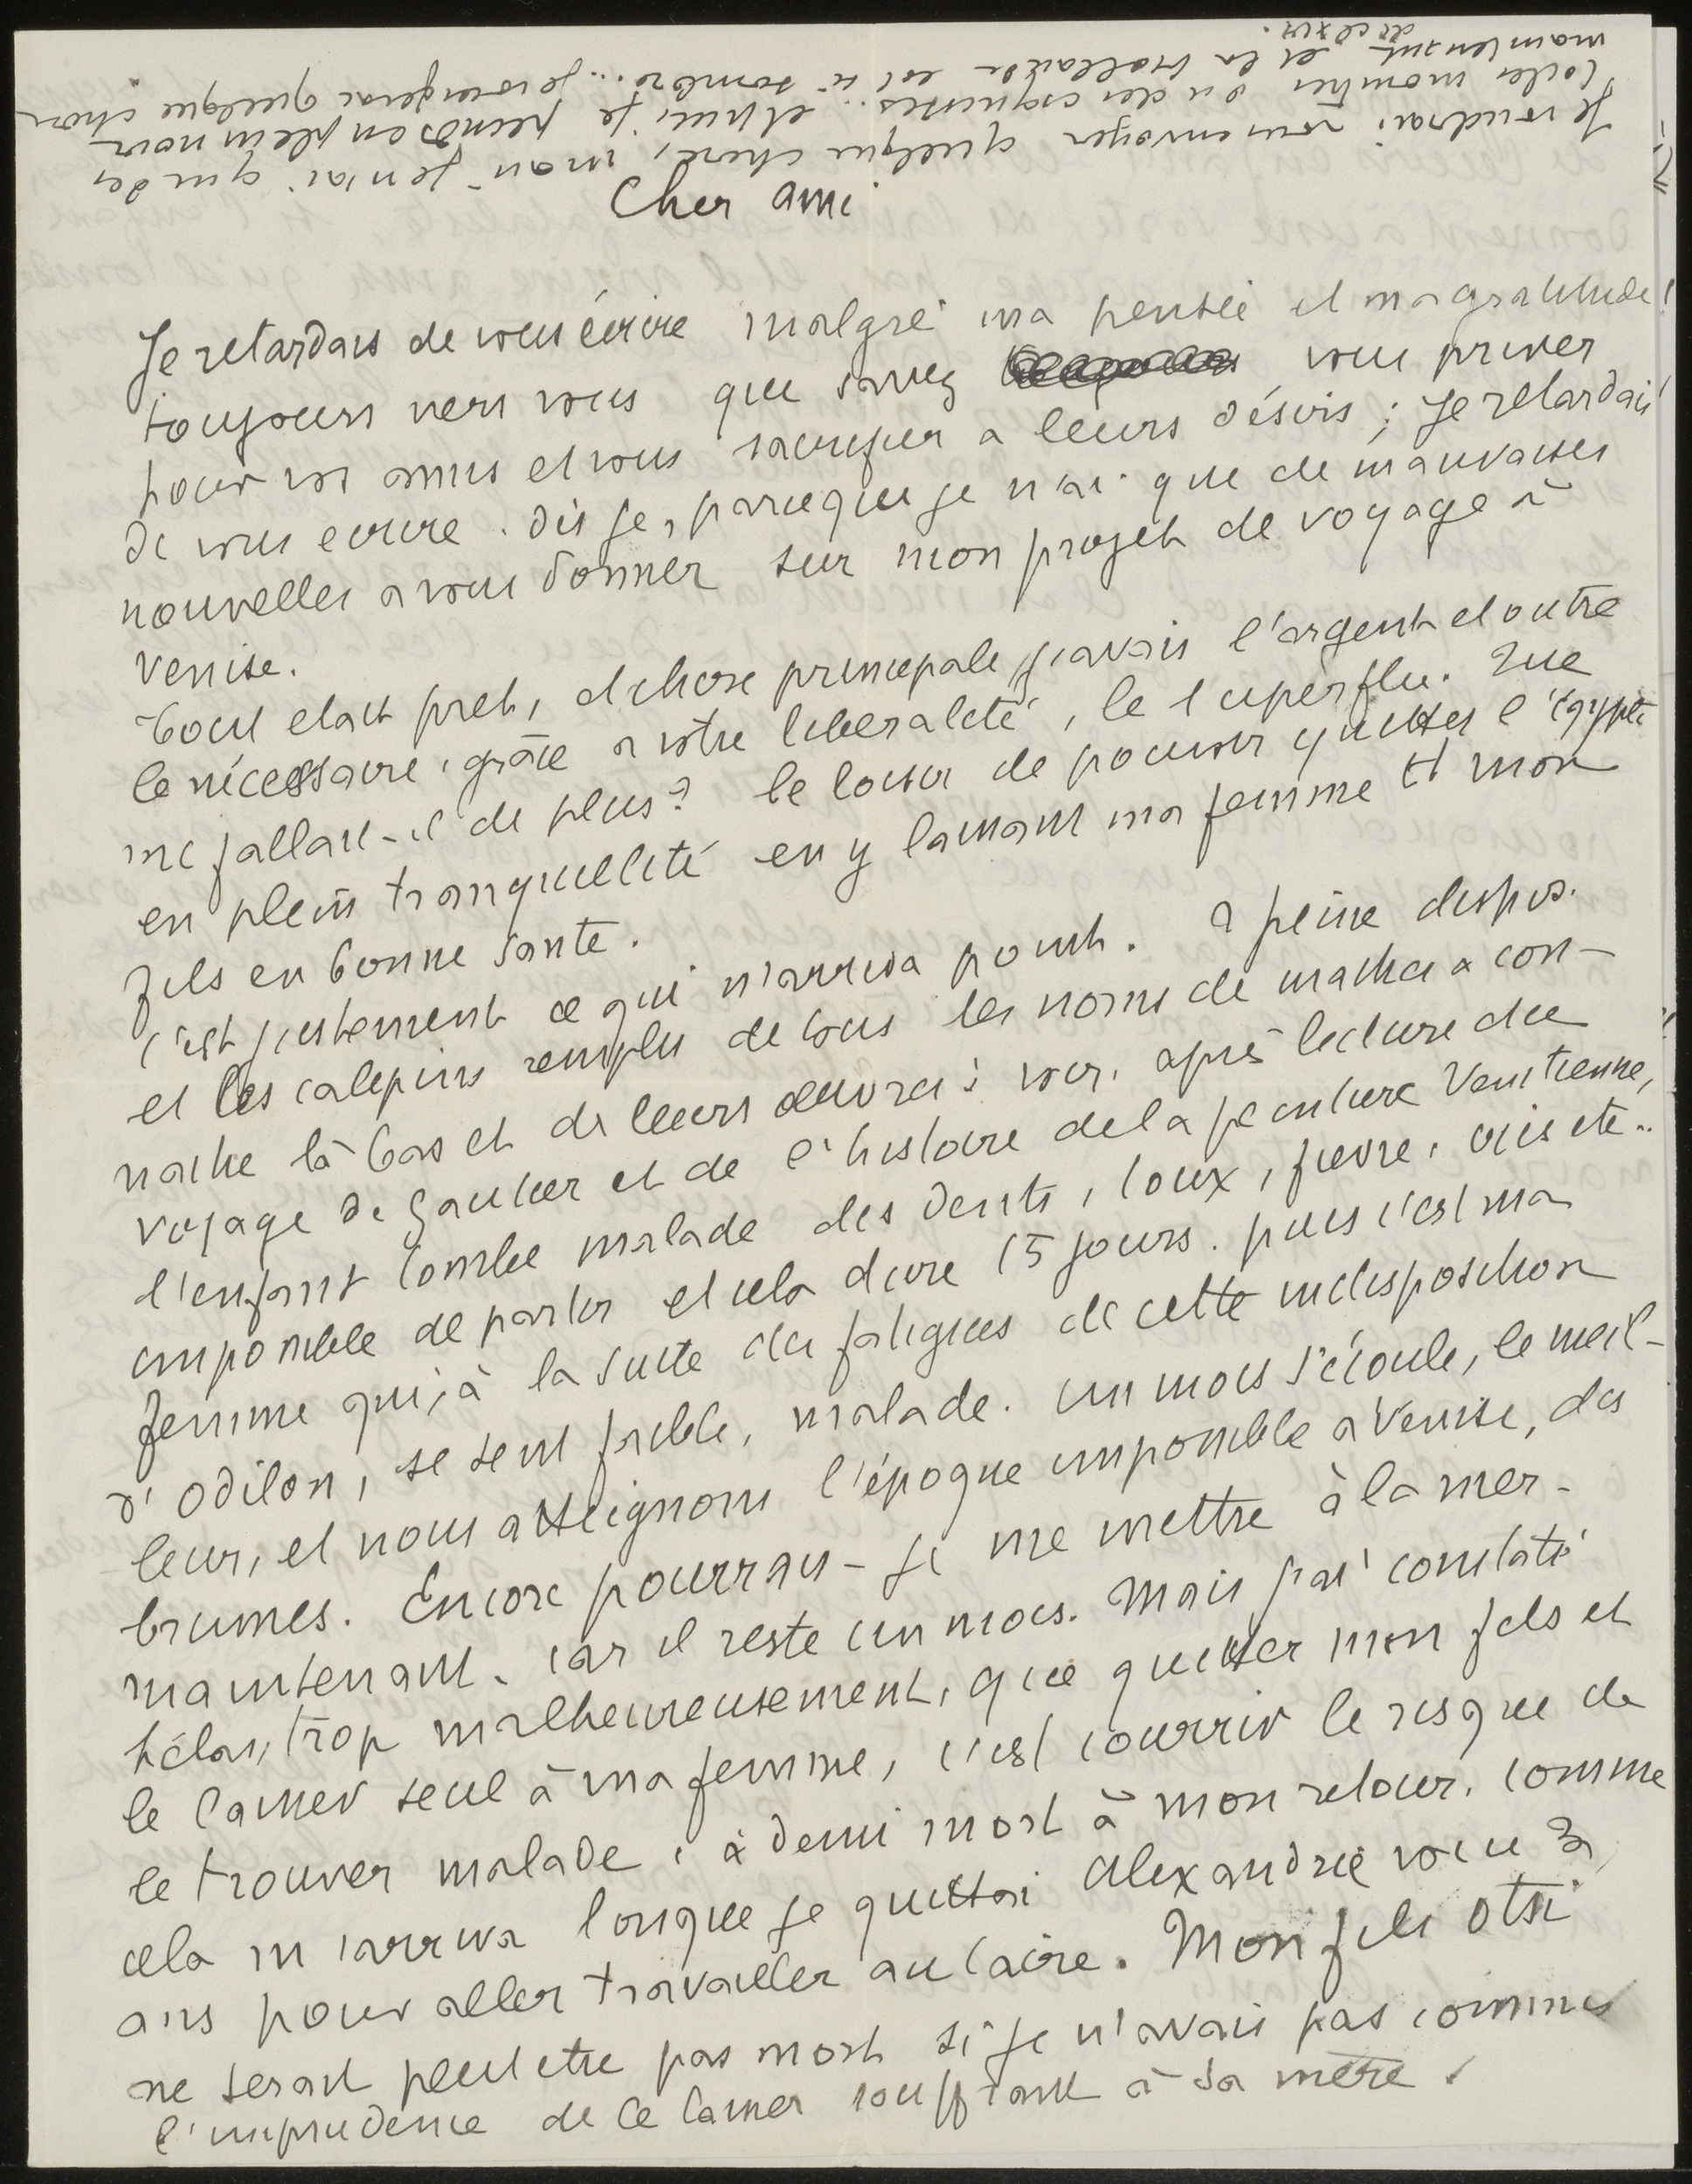 Cher ami
Je retardais de vous écrire malgré ma pensée et ma gratitude
toujours vers vous que savez vous priver
pour vos amis et vous sacrifier a leurs désirs ; Je retardais
de vous ecrire. dis je, parceque je n'ai que de mauvaises
nouvelles a vous donner sur mon projet de voyage à
Venise.
Tout etait pret, et chose principale, j'avais l'argent et outre
le nécessaire, grâce a votre liberalité, le superflu. Que
me fallait-il de plus? le loisir de pouvoir quitter l'égypte
en plein tranquillité en y laissant ma femme et mon
fils en bonne santé.
C'est justement ce qui n'arriva point. a peine dispos.
et les calepins remplis de tous les noms de maitres a con-
naitre là bas et de leurs oeuvres à voir, après lecture du
voyage de Gautier et de l'histoire de la peinture Venitienne,
l'enfant tombe malade des dents, toux, fievre, cris etc..
impossible de partir et cela dure 15 jours. puis c'est ma
femme qui, à la suite des fatigues de cette indisposition
d'Odilon, se sent faible, malade. un mois s'écoule, le meil-
leur, et nous atteignons l'époque impossible a Venise, des
brumes. Encore pourrais-je me mettre à la mer-
maintenant. car il reste un mois. Mais j'ai constaté
hélas, trop malheureusement, que quitter mon fils et
le laisser seul à ma femme, c'est courrir le risque de
le trouver malade, à demi mort à mon retour. comme
cela m'arriva lorsque je quittai Alexandrie voici 3
ans pour aller travailler au Caire. Mon fils Otsi
ne serait peut etre pas mort si je n'avais pas commis
l'imprudence de le laisser souffrant à sa mère.
Je voudrai vous envoyer quelque chose, mais je n'ai que des
toiles montres ou des esquisses... et puis je peinds en plein noir
maintenant et la est si sombre... je songerai quelque chose